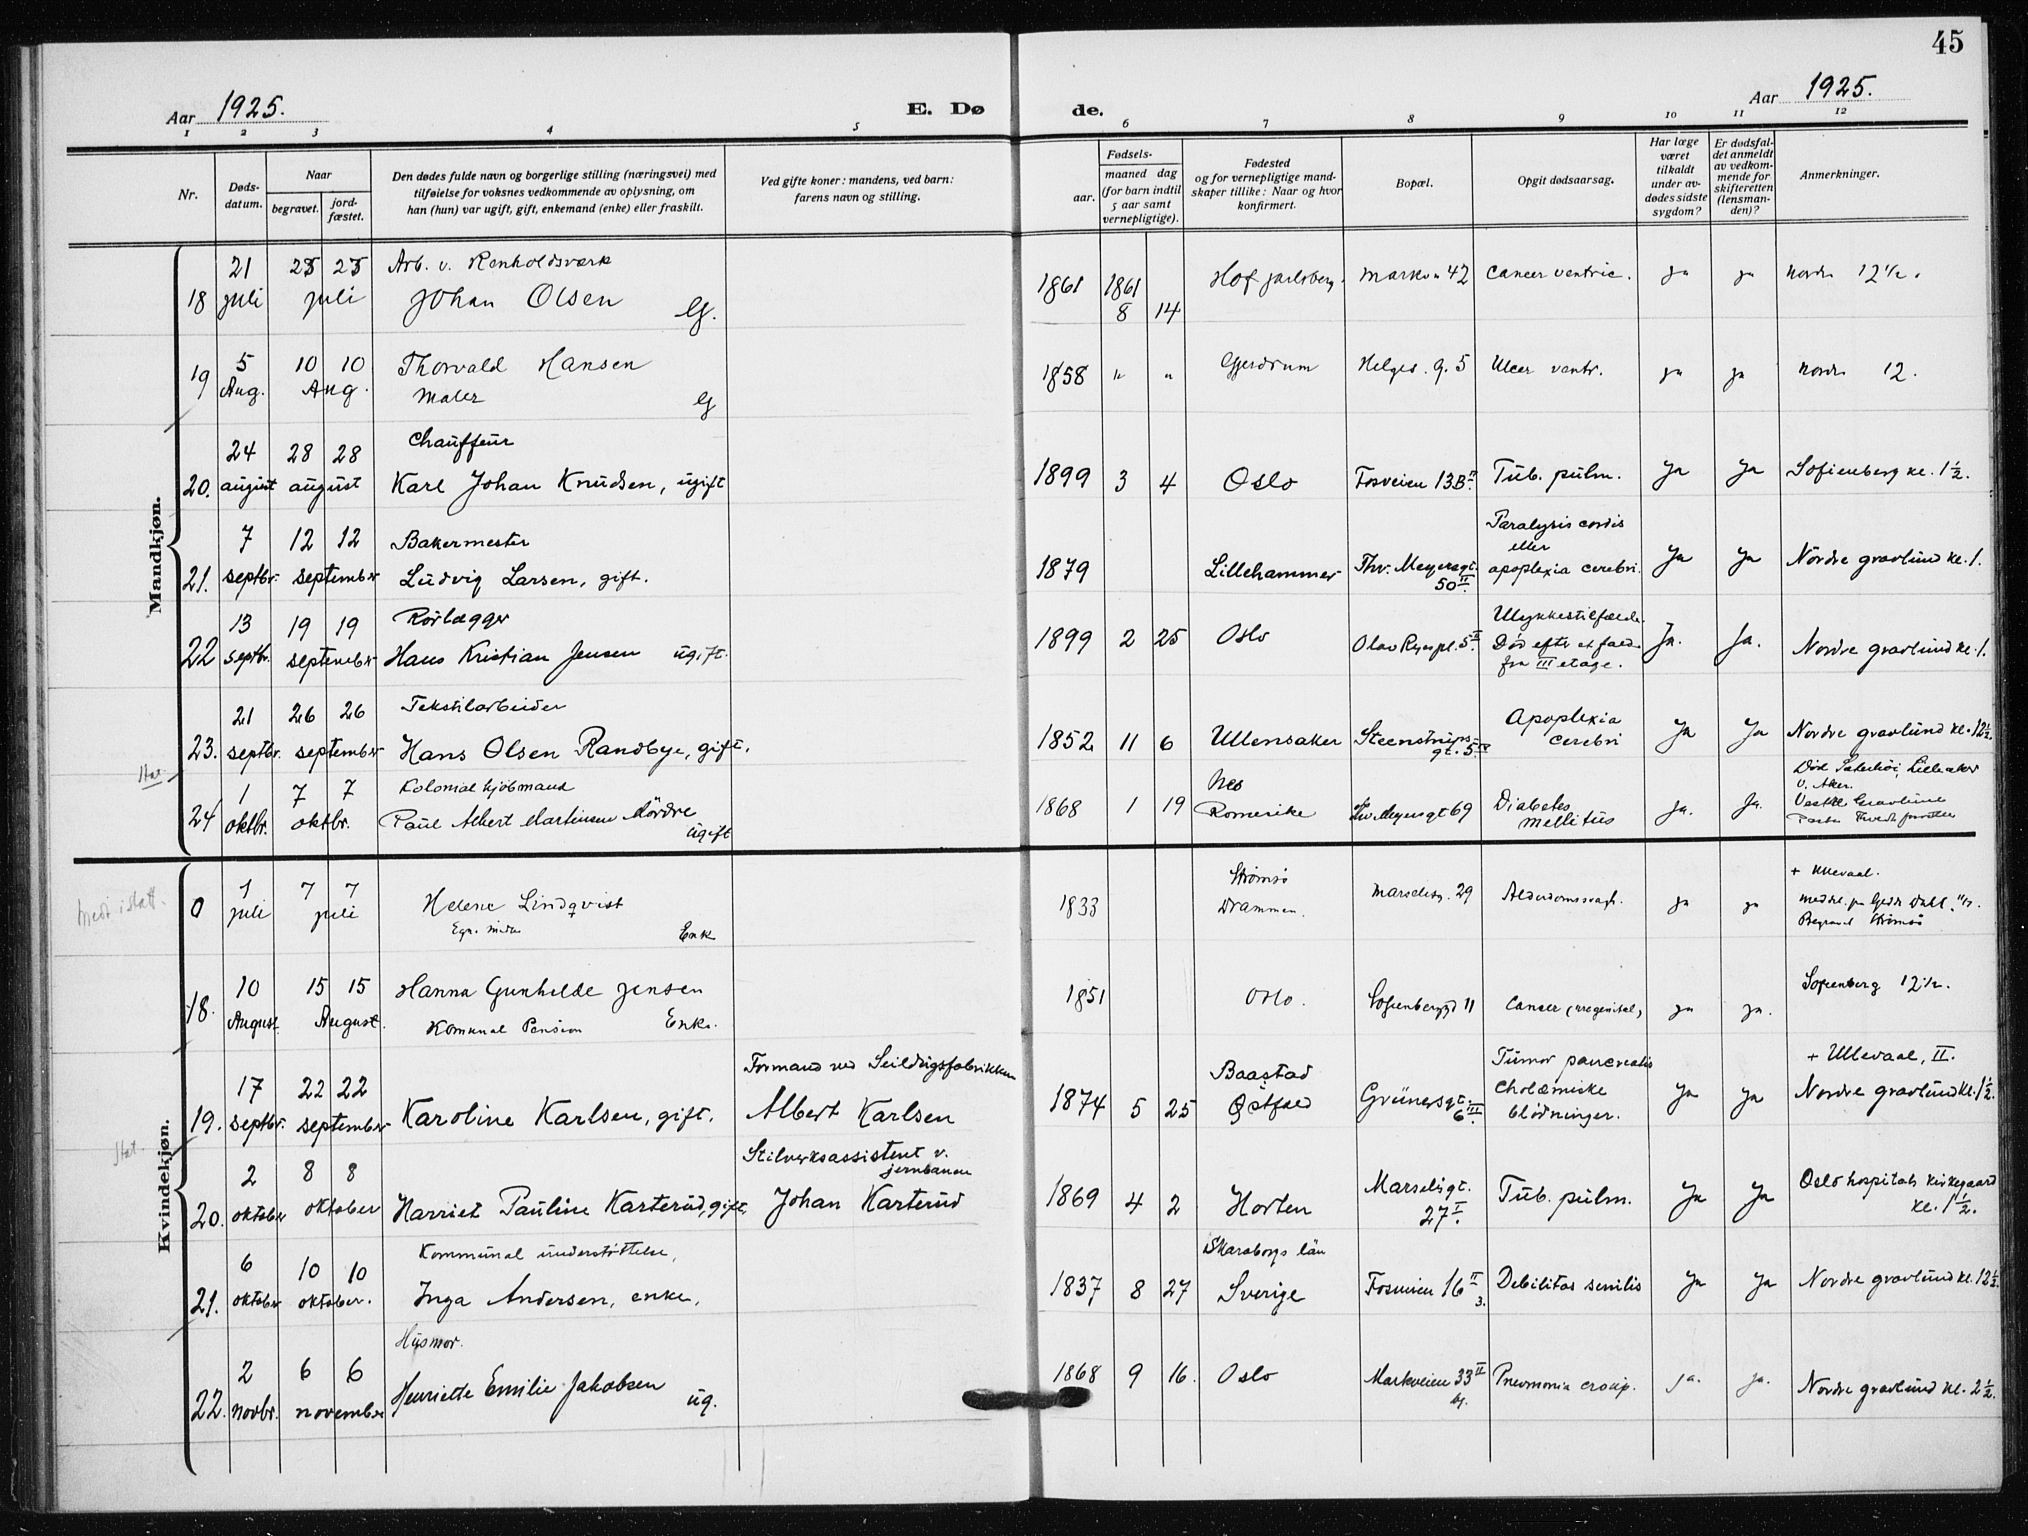 45
Aar 1925. E. Døde. Aar 1925.
1 2 3 4 5 6 7 8 9 10 11 12
Nr.
Døds-
datum.
Naar
begravet.
jord-
fæstet.
Den dødes fulde navn og borgerlige stilling (næringsvei) med
tilføielse for voksnes vedkommende av oplysning, om
han (hun) var ugift, gift, enkemand (enke) eller fraskilt.
Ved gifte koner: mandens, ved barn:
farens navn og stilling.
Fødsels-
aar.
maaned dag
(for barn indtil
5 aar samt
vernepligtige).
Fødested
og for vernepligtige mand-
skaper tillike: Naar og hvor
konfirmert.
Bopæl.
Opgit dødsaarsag.
Har læge
været
tilkaldt
under av-
dødes sidste
sygdom?
Er dødsfal-
det anmeldt
av vedkom-
mende for
skifteretten
(lensman-
den)?
Anmerkninger.
Mandkjøn.
21 25 25 Arb. v. Renholdsværk
18 juli juli Johan Olsen G. 1861 1861 8 14 Hof Jarlsberg. Markv. 42 Cancer ventric. ja ja Nordre 12½.
5 10 10 Thorvald Hansen
19 Aug. Aug. Maler G 1858 " " Gjerdrum Helges. g. 5 Ulcer ventr. ja ja Nordre 12.
24 28 28 Chauffeur
20. august august Karl Johan Knudsen, ugift 1899 3 4 Oslo Fosveien 13B II. Tub. pulm. Ja Ja Sofienberg kl. 1½.
7 12 12 Bakermester
21. septbr. september Ludvig Larsen, gift. 1879 Lillehammer Thv. Meyersgt. 50 II. Paralysis cordis
eller
apoplexia cerebri. Ja Ja Nordre gravlund kl. 1.
13 19 19 Rørlægger
22 septbr. september Hans Kristian Jensen ugift. 1899 2 25 Oslo Olav Ryespl. 5 II. Ulykkestilfælde.
Død efter et fald
fra III etage. Ja. Ja. Nordre gravlund kl. 1.
21 26 26 Tekstilarbeider
23. septbr. september Hans Olsen Randbye, gift. 1852 11 6 Ullensaker Steenstrups-
gt. 5 Apoplexia
cerebri Ja Ja Nordre gravlund kl. 12½.
Stat.
1 7 7 Kolonialkjøbmand
24 oktbr. oktbr. Paul Albert Martinsen Mørdre
ugift 1868 1 19 Nes
Romerike Thv. Meyersgt 69 Diabetes
mellitus Ja. Ja. Død Lilleaker
V. Aker.
Vestre Gravlund
Kvindekjøn.
1 7 7
0 juli juli Helene Lindqvist
Egn. midler Enk 1833 Strømsø
Drammen. Marselisg. 29 Alderdomssvagh. ja ja + Ullevaal.
Begravet Strømsø
10 15 15 Hanna Gunhilde Jensen
18. August. August. Komunal Pension Enke. 1851 Oslo. Sofienberggt 11 Cancer ja ja. Sofienberg 12½.
17 22 22 Formand ved Seildugsfabrikken
19. septbr. september Karoline Karlsen, gift. Albert Karlsen 1874 5 25 Baastad
Østfold Grünersgt. 6 III. Tumor pancreatis
Cholæmiske
blødninger. Ja Ja + Ullevaal, II.
Nordre gravlund kl. 1½.
Stat.
2 8 8 Stilverksassistent v.
jernbanen
20. oktober oktober Harriet Pauline Karterud, gift. Johan Karterud 1869 4 2 Horten Marselisgt.
27 I. Tub. pulm. Ja Ja Oslo hospitals kirkegaard
kl. 1½.
6 10 10 Kommunal understøttelse,
21. oktober oktober. Inga Andersen, enke, 1837 8 27 Skaraborgs län
Sverige Fosveien 16 II
3. Debilitas senilis Ja Ja Nordre gravlund kl. 12½.
2 6 6 Husmor.
22. novbr. november Henriette Emilie Jakobsen ug. 1868 9 16. Oslo Markveien 33 II Pneumonia croup. ja. ja. Nordre gravlund kl. 2½.